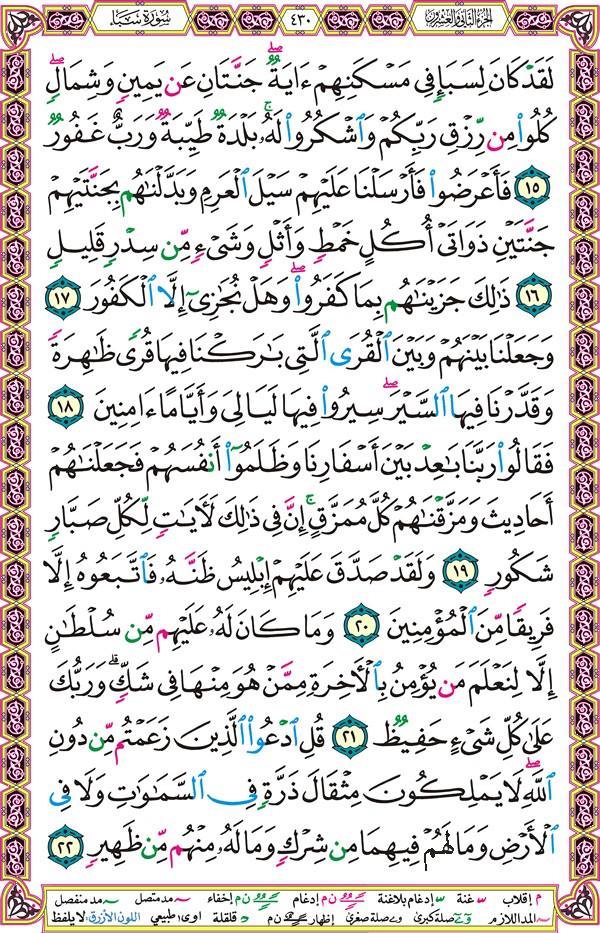 الجزء الثاني والعشرون ٤٣٠ سورة سبأ
لَقَدْ كَانَ لِسَبَإٍ فِى مَسْكَنِهِمْ ءَايَةٌ ۖ جَنَّتَانِ عَن يَمِينٍ وَشِمَالٍ ۖ
كُلُوا۟ مِن رِّزْقِ رَبِّكُمْ وَٱشْكُرُوا۟ لَهُۥ ۚ بَلْدَةٌ طَيِّبَةٌ وَرَبٌّ غَفُورٌ
١٥ فَأَعْرَضُوا۟ فَأَرْسَلْنَا عَلَيْهِمْ سَيْلَ ٱلْعَرِمِ وَبَدَّلْنَٰهُم بِجَنَّتَيْهِمْ
جَنَّتَيْنِ ذَوَاتَىْ أُكُلٍ خَمْطٍ وَأَثْلٍ وَشَىْءٍ مِّن سِدْرٍ قَلِيلٍ
١٦ ذَٰلِكَ جَزَيْنَٰهُم بِمَا كَفَرُوا۟ ۖ وَهَلْ نُجَٰزِىٓ إِلَّا ٱلْكَفُورَ ١٧
وَجَعَلْنَا بَيْنَهُمْ وَبَيْنَ ٱلْقُرَى ٱلَّتِى بَٰرَكْنَا فِيهَا قُرًى ظَٰهِرَةً
وَقَدَّرْنَا فِيهَا ٱلسَّيْرَ ۖ سِيرُوا۟ فِيهَا لَيَالِىَ وَأَيَّامًا ءَامِنِينَ ١٨
فَقَالُوا۟ رَبَّنَا بَٰعِدْ بَيْنَ أَسْفَارِنَا وَظَلَمُوٓا۟ أَنفُسَهُمْ فَجَعَلْنَٰهُمْ
أَحَادِيثَ وَمَزَّقْنَٰهُمْ كُلَّ مُمَزَّقٍ ۚ إِنَّ فِى ذَٰلِكَ لَءَايَٰتٍ لِّكُلِّ صَبَّارٍ
شَكُورٍ ١٩ وَلَقَدْ صَدَّقَ عَلَيْهِمْ إِبْلِيسُ ظَنَّهُۥ فَٱتَّبَعُوهُ إِلَّا
فَرِيقًا مِّنَ ٱلْمُؤْمِنِينَ ٢٠ وَمَا كَانَ لَهُۥ عَلَيْهِم مِّن سُلْطَٰنٍ
إِلَّا لِنَعْلَمَ مَن يُؤْمِنُ بِٱلْءَاخِرَةِ مِمَّنْ هُوَ مِنْهَا فِى شَكٍّ ۗ وَرَبُّكَ
عَلَىٰ كُلِّ شَىْءٍ حَفِيظٌ ٢١ قُلِ ٱدْعُوا۟ ٱلَّذِينَ زَعَمْتُم مِّن دُونِ
ٱللَّهِ ۖ لَا يَمْلِكُونَ مِثْقَالَ ذَرَّةٍ فِى ٱلسَّمَٰوَٰتِ وَلَا فِى
ٱلْأَرْضِ وَمَا لَهُمْ فِيهِمَا مِن شِرْكٍ وَمَا لَهُۥ مِنْهُم مِّن ظَهِيرٍ ٢٢
م إقلاب غنة إدغام بلاغنة ن م إدغام ن م إخفاء مد متصل مد منفصل
المد اللازم صلة كبرى صلة صغرى إظهار ن م قلقلة اوى طبيعي اللون الأزرق: لا يلفظ